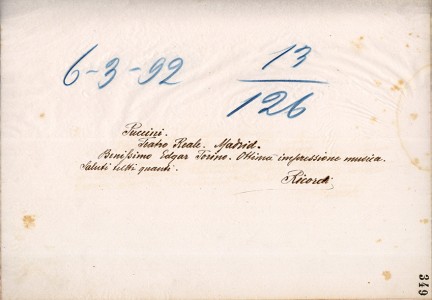 6-3-92
13
126
Puccini.
Teatro Reale. Madrid.
Benissimo Edgar Torino. Ottima impressione musica.
Saluti tutti quanti.
Ricordi
349